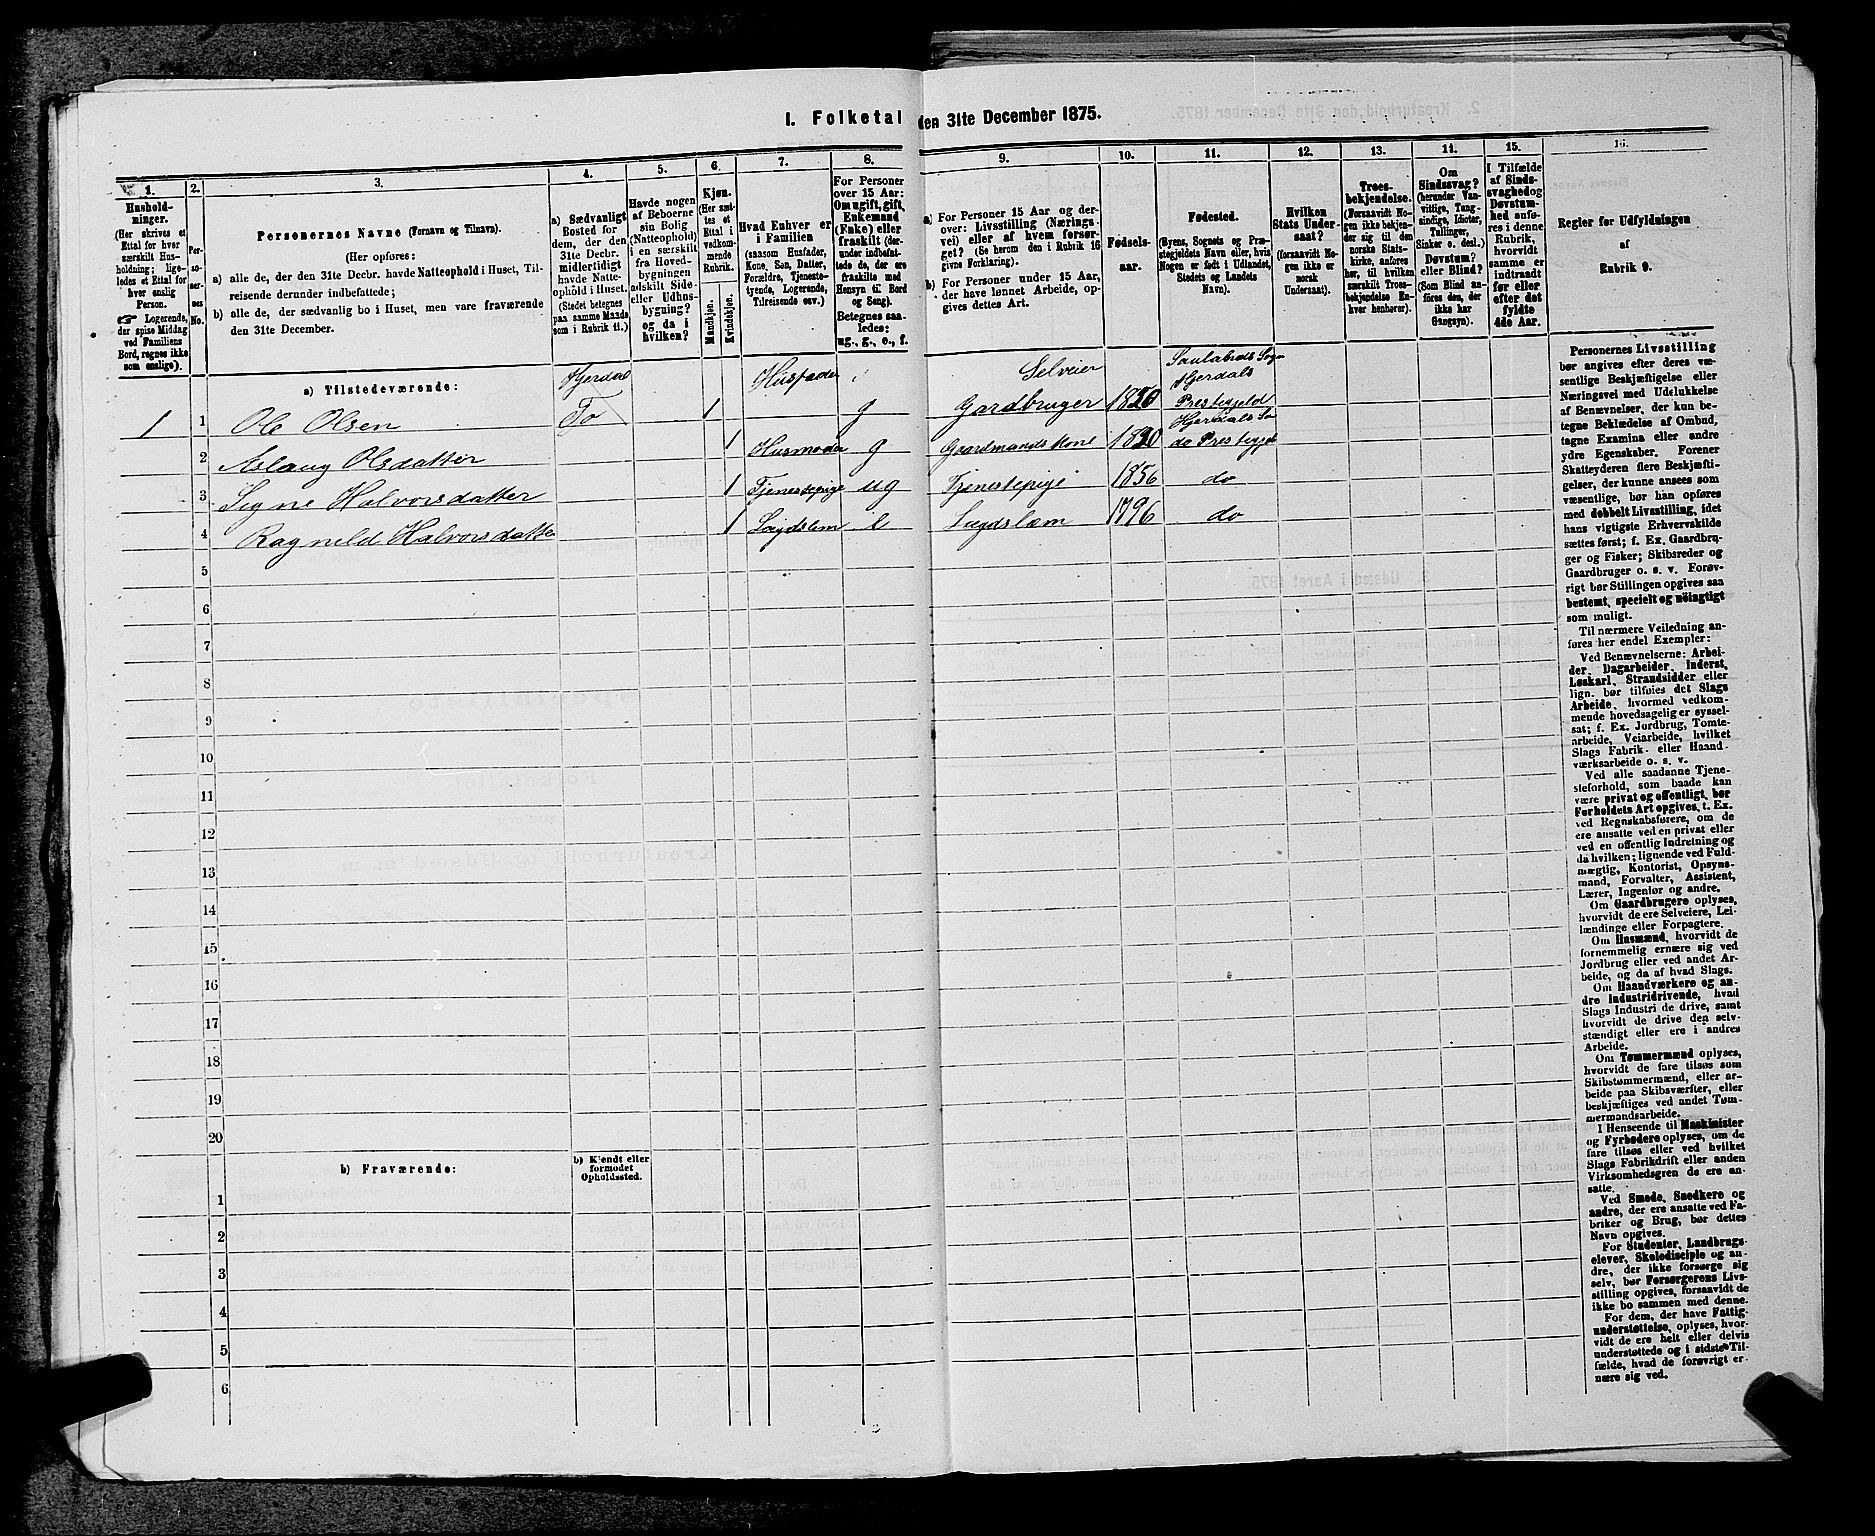 I. Folketal den 31te December 1875.
1.
2.
3.
4.
5.
6.
7.
8.
9.
10.
11.
12.
13.
14.
15.
16.
Hushold-
ninger.
(Her skrives et
Ettal for hver
særskilt Hus-
holdning; lige-
ledes et Ettal for
hver enslig
Person.
Logerende,
der spise Middag
ved Familiens
Bord, regnes ikke
som enslige).
Per-
so-
ner-
nes
No.
Personernes Navne (Fornavn og Tilnavn).
(Her opføres:
a) alle de, der den 31te Decbr. havde Natteophold i Huset, Til-
reisende derunder indbefattede;
b) alle de, der sædvanlig bo i Huset, men vare fraværende
den 31te December.
a) Sædvanligt
Bosted for
dem, der den
31te Decbr.
midlertidigt
havde Natte-
ophold i Huset.
(Stedet betegnes
paa samme Maade
som i Rubrik 11.)
Havde nogen
af Beboerne
sin Bolig
(Natteophold)
i en særskilt
fra Hoved-
bygningen
adskilt Side-
eller Udhus-
bygning?
og da i
hvilken?
Kjøn.
(Her sæt-
tes et
Ettal i
vedkom-
mende
Rubrik.
Mandkjøn.
Kvindekjøn.
Hvad Enhver er
i Familien
(saasom Husfader,
Kone, Søn, Datter,
Forældre, Tjeneste-
tyende, Logerende,
Tilreisende osv.)
For Personer
over 15 Aar:
Om ugift, gift,
Enkemand
(Enke) eller
fraskilt (der-
under indbefat-
tede de, der ere
fraskilte med
Hensyn til Bord
og Seng).
Betegnes saa-
ledes:
ug., g., e., f.
a) For Personer 15 Aar og der-
over: Livsstilling (Nærings-
vei) eller af hvem forsør-
get? (Se herom den i Rubrik 16
givne Forklaring).
b) For Personer under 15 Aar,
der have lønnet Arbeide, op-
gives dettes Art.
Fødsels-
aar.
Fødested.
(Byens, Sognets og Præ-
stegjeldets Navn eller, hvis
Nogen er født i Udlandet,
Stedets og Landets
Navn).
Hvilken
Stats Under-
saat?
(forsaavidt No-
gen ikke er
norsk
Undersaat).
Troes-
bekjendelse.
(Forsaavidt No-
gen ikke bekjen-
der sig til den
norske Stats-
kirke, anføres
her, til hvilken
særskilt Troes-
bekjendelse En-
hver henhører).
Om
Sindssvag?
(herunder Van-
vittige, Tung-
sindige, Idioter,
Tullinger,
Sinker o. desl.)
Døvstum?
eller Blind?
(Som Blind an-
føres den, der
ikke har
Gangsyn).
I Tilfælde
af Sinds-
svaghed og
Døvstum-
hed anfø-
res i denne
Rubrik,
hvorvidt
samme er
indtraadt
før eller
efter det
fyldte
4de Aar.
Regler for Udfyldningen
af
Rubrik 9.
a) Tilstedeværende:
1 1 Ole Olsen Hjerdal To 1 Husfader g Selveier Gardbruger 1820 Saulands Sogn Hjerdals Prestegjeld
2 Aslaug Olsdatter 1 Husmoder g Gaardmands Kone 1820 Hjerdals So do Prestegjel
3 Signe Halvorsdatter 1 Tjenestepige ug Tjenestepige 1856 do
4 Ragneld Halvorsdatter 1 Lægdslem e Lægdslæm 1796 do
5
6
7
8
9
10
11
12
13
14
15
16
17
18
19
20
b) Fraværende:
b) Kjendt eller
formodet
Opholdssted.
1
2
3
4
5
6
Personernes Livsstilling
bør angives efter deres væ-
sentlige Beskjæftigelse eller
Næringsvei med Udelukkelse
af Benævnelser, der kun be-
tegne Beklædelse af Ombud,
tagne Examina eller andre
ydre Egenskaber. Forener
Skatteyderen flere Beskjæfti-
gelser, der kunne ansees som
væsentlige, bør han opføres
med dobbelt Livsstilling, idet
hans vigtigste Erhvervskilde
sættes først; f. Ex. Gaardbru-
ger og Fisker; Skibsreder og
Gaardbruger o. s. v. Forøv-
rigt bør Stillingen opgives saa
bestemt, specielt og nöiagtigt
som muligt.
Til nærmere Veiledning an-
føres her endel Exempler:
Ved Benævnelserne: Arbei-
der, Dagarbeider, Inderst,
Løskarl, Strandsidder eller
lign. bør tilføies det Slags
Arbeide, hvormed vedkom-
mende hovedsagelig er syssel-
sat; f. Ex. Jordbrug, Tomte-
arbeide, Veiarbeide, hvilket
Slags Fabrik- eller Haand-
værksarbeide o. s. v.
Ved alle saadanne Tjene-
steforhold, som baade kan
være privat og offentligt, bør
Forholdets Art opgives, t. Ex.
ved Regnskabsførere, om de
ere ansatte ved en privat eller
ved en offentlig Indretning og
da hvilken; lignende ved Fuld-
mægtig, Kontorist, Opsyns-
mand, Forvalter, Assistent,
Lærer, Ingeniør og andre.
Om Gaardbrugere oplyses,
hvorvidt de ere Selveiere, Lei-
lændinge eller Forpagtere.
Om Husmænd, hvorvidt de
fornemmelig ernære sig ved
Jordbrug eller ved andet Ar-
beide, og da af hvad Slags.
Om Haandværkere og an-
dre Industridrivende, hvad
Slags Industri de drive, samt
hvorvidt de drive den selv-
stændigt eller ere i andres
Arbeide.
Om Tømmermænd oplyses,
hvorvidt de fare tilsøs som
Skibstømmermænd, eller ar-
beide paa Skibsværfter, eller
beskjæftiges ved andet Tøm-
mermandsarbeide.
I Henseende til Maskinister
og Fyrbødere oplyses, om de
fare tilsøs eller ved hvilket
Slags Fabrikdrift eller anden
Virksomhedsgren de ere an-
satte.
Ved Smede, Snedkere og
andre, der ere ansatte ved Fa-
briker og Brug, bør dettes
Navn opgives.
For Studenter, Landbrugs-
elever, Skoledisciple og an-
dre, der ikke forsørge sig
selv, bør Forsørgerens Livs-
stilling opgives, forsaavidt de
ikke bo sammen med denne.
For dem, der have Fattig-
understøttelse, oplyses, hvor-
vidt de ere helt eller delvis
understøttede og i sidste Til-
fælde, hvad de forøvrigt er-
nære sig ved.